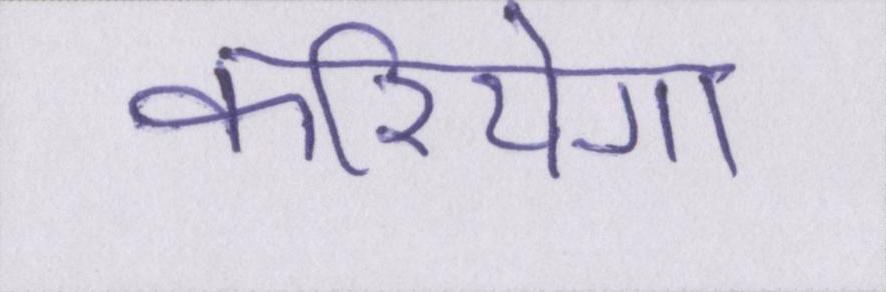 करियेगा